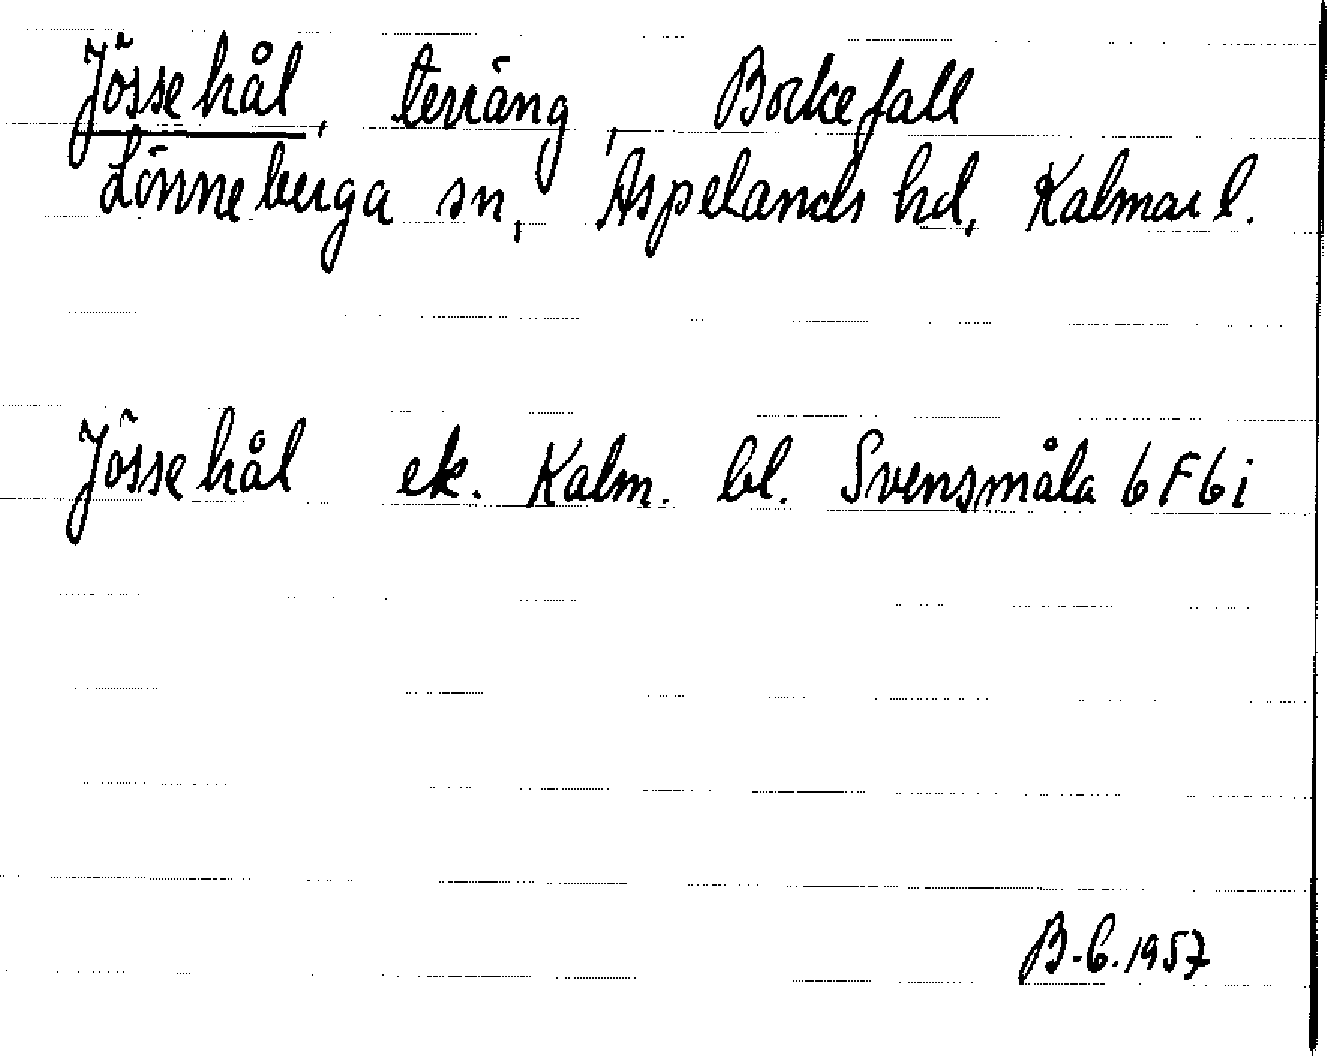 Jössehål, terräng, Bockefall
Lönneberga sn, Aspelands hd, Kalmar l.
Jössehål ek. Kalm. bl. Svensmåla 6F6i
B-b.1957